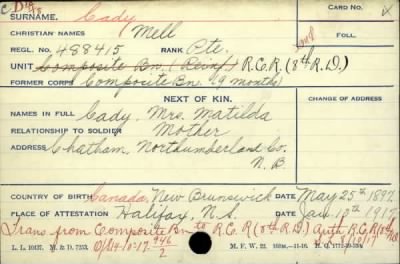 CARD NO.
SURNAME. Cady
CHRISTIAN NAMES Mell
FOLL.
REGL. NO. 488415 RANK Pte.
UNIT Composite Bn. (Reinf) R.C.R. (8th R.D.)
FORMER CORPS Composite Bn. (9 months)
NEXT OF KIN.
CHANGE OF ADDRESS
NAMES IN FULL Cady, Mrs. Matilda
RELATIONSHIP TO SOLDIER Mother
ADDRESS Chatham, Northumberland Co.
N.B.
COUNTRY OF BIRTH Canada, New Brunswick DATE May 25th 1897
PLACE OF ATTESTATION Halifax, N.S. DATE Jan. 10th 1917
Trans from Composite Bn to R.C.R (8th R.D) Auth R.C.R
L. L. 10417. M. & D. 7253. M. F. W. 22.